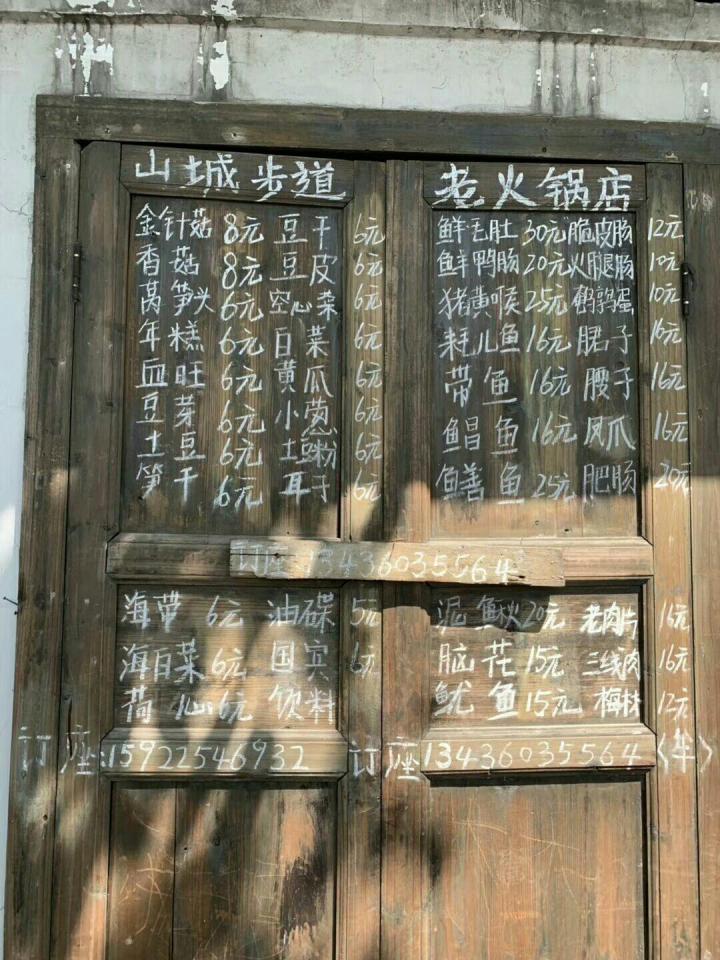 山城步道 老火锅店
金针菇 8元 豆干 6元 鲜毛肚 30元 脆皮肠 12元
香菇 8元 豆皮 6元 鲜鸭肠 20元 火腿肠 10元
莴笋头 6元 空心菜 6元 猪黄喉 25元 鹌鹑蛋 10元
年糕 6元 白菜 6元 耗儿鱼 16元 𦙶子 16元
血旺 6元 黄瓜 6元 带鱼 16元 腰子 16元
豆芽 6元 小葱 6元 鲳鱼 16元 凤爪 16元
土豆 6元 土豆粉 6元 鳝鱼 25元 肥肠 20元
笋干 6元 耳子 6元
订座:13436035564
海带 6元 油碟 5元 泥鳅 20元 老肉片 16元
海白菜 6元 国宾 6元 脑花 15元 三线肉 16元
荷心 6元 饮料 鱿鱼 15元 梅林 12元
订座:15922546932 订座13436035564 (牟)